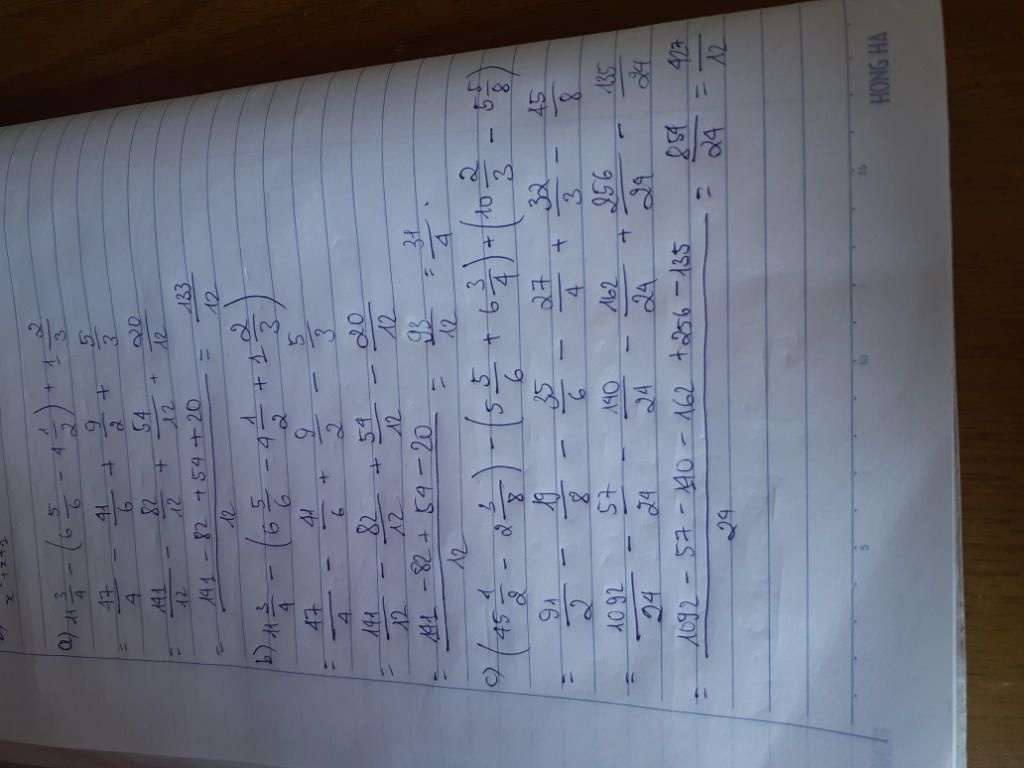 a) 11 3/4 - (6 5/6 - 4 1/2) + 1 2/3
= 47/4 - 41/6 + 9/2 + 5/3
= 141/12 - 82/12 + 54/12 + 20/12
= (141 - 82 + 54 + 20)/12 = 133/12
b) 11 3/4 - (6 5/6 - 4 1/2 + 1 2/3)
= 47/4 - 41/6 + 9/2 - 5/3
= 141/12 - 82/12 + 54/12 - 20/12
= (141 - 82 + 54 - 20)/12 = 93/12 = 31/4.
c) (45 1/2 - 2 3/8) - (5 5/6 + 6 3/4) + (10 2/3 - 5 5/8)
= 91/2 - 19/8 - 35/6 - 27/4 + 32/3 - 45/8
= 1092/24 - 57/24 - 140/24 - 162/24 + 256/24 - 135/24
= (1092 - 57 - 140 - 162 + 256 - 135)/24 = 854/24 = 427/12
HONG HA
5 10 15